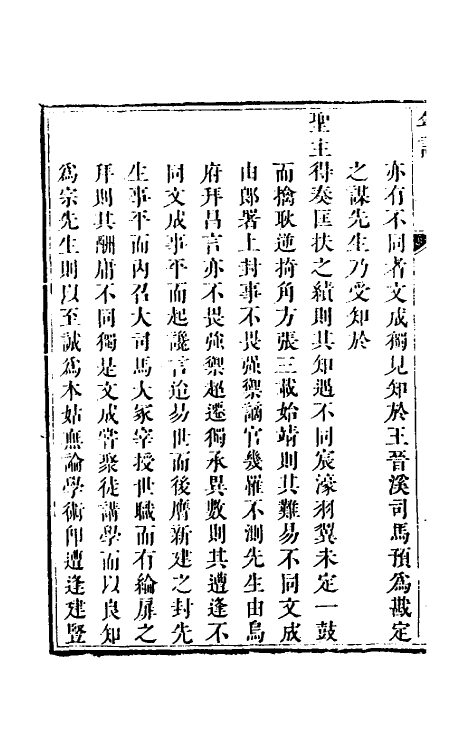 年譜
亦有不同者文成獨見知於王晉溪司馬預爲戡定
之謀先生乃受知於
聖主得奏匡扶之績則其知遇不同宸濠羽翼未定一鼓
而擒耿逆掎角方張三載始靖則其難易不同文成
由郎署上封事不畏强禦謫官幾罹不測先生由烏
府拜昌言亦不畏强禦超遷獨承異數則其遭逢不
同文成事平而起讒言迨易世而後膺新建之封先
生事平而內召大司馬大冢宰授世職而有綸扉之
拜則其酬庸不同獨是文成常聚徒講學而以良知
爲宗先生則以至誠爲本姑無論學術仰遭逢建豎